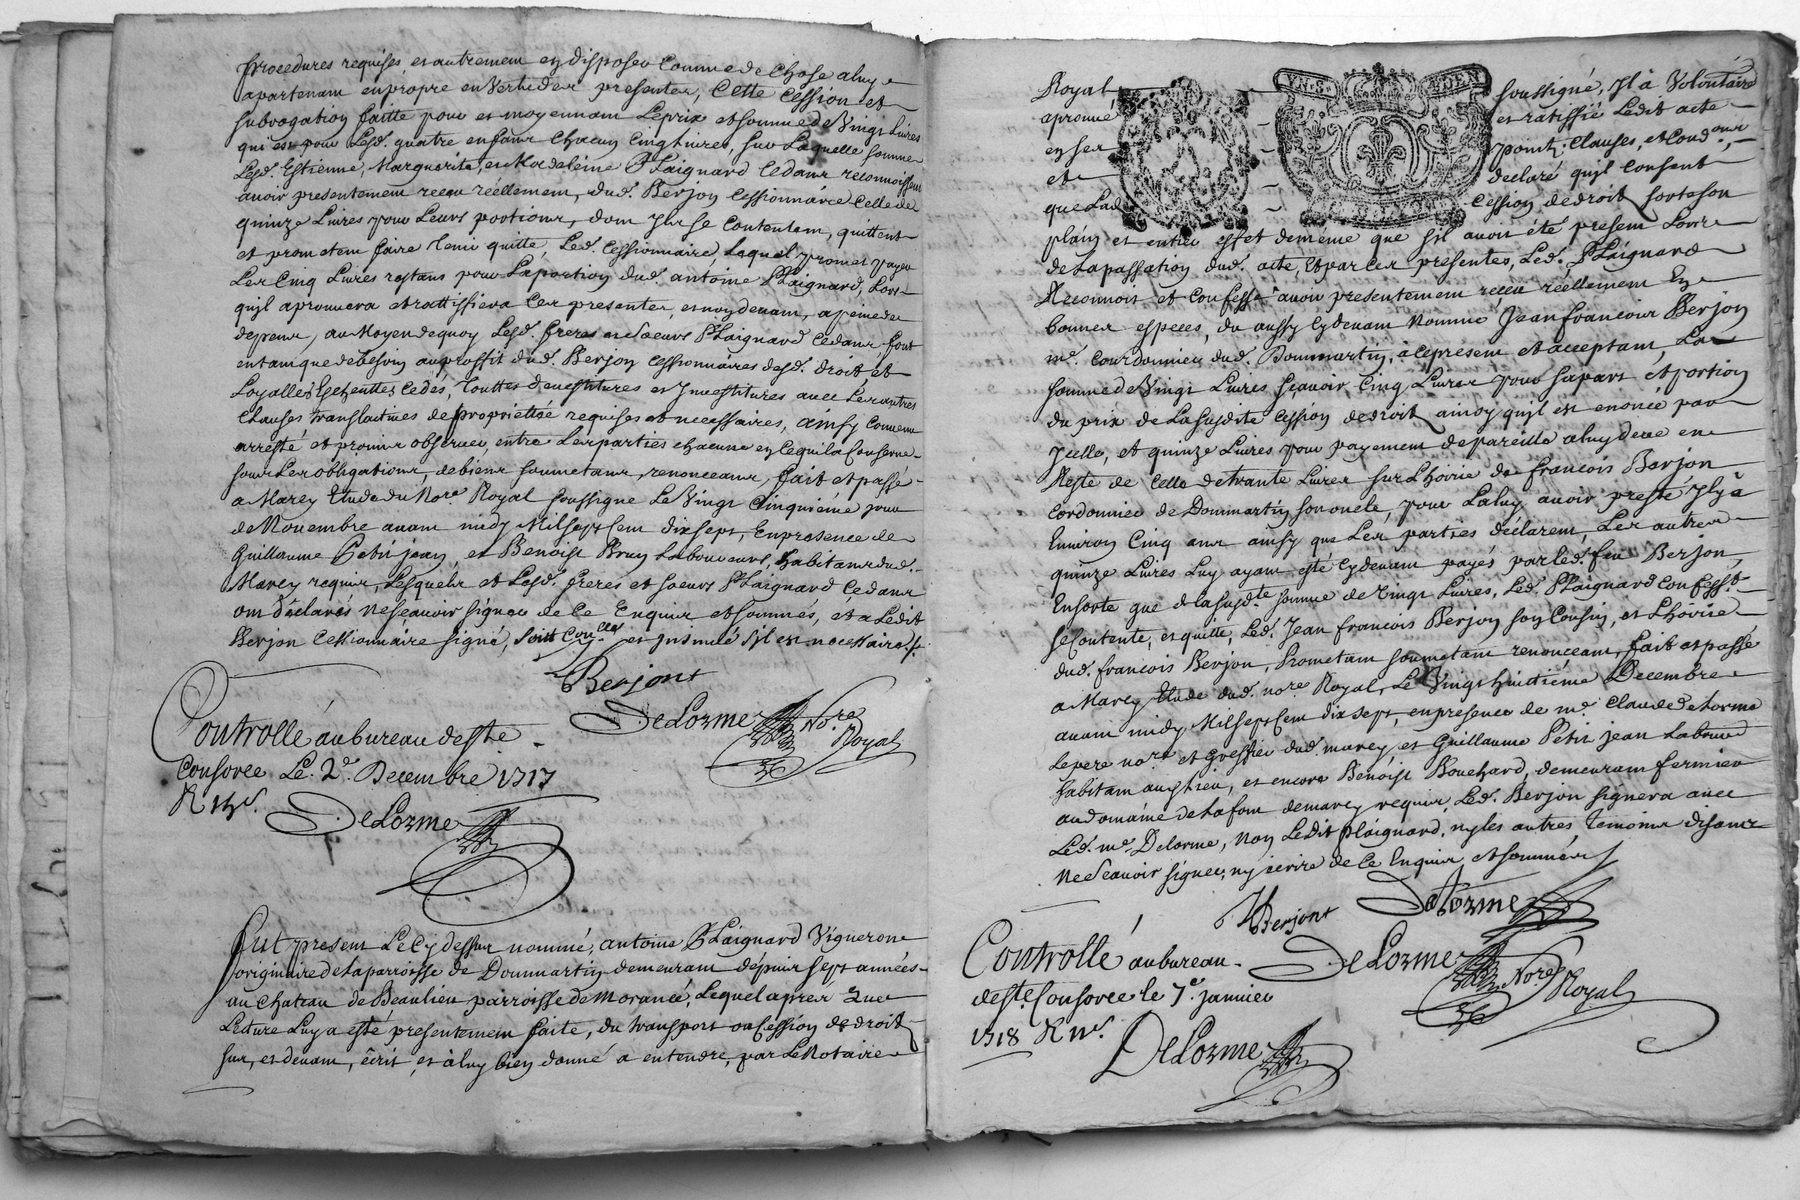 procedures requises et autrement en disposer comme de chose a luy
apartenant en propre en vertu des presentes, Cette Cession et
subrogation faitte pour et moyennant Le prix et somme de Vingt Livres
qui est pour Lesd. quatre enfans chacun Cinq livres, sur Laquelle somme
Lesd. Estienne, Marguerite, et Madeleine Plaignard Cedans reconnoissent
avoir presentement receu réellement, dud. Berjon Cessionnaire Celle de
quinze Livres pour Leurs portions, dont Ils se Contentent, quittent
et prometent faire tenir quitte Led. Cessionnaire, Lequel promet payer
Les Cinq Livres restans pour La portion dud. antoine Plaignard, Lors
qu'jl aprouvera et rattiffiera Les presentes, et moyenant, a peine de
depens, au Moyen de quoy Lesd. freres et Soeurs Plaignard Cedans, font
entant que de besoin au proffit dud. Berjon Cessionnaires desd. droit et
Loyalles Echeuttes Cedés, touttes devestitures et Jnvestitures avec Les autres
Clauses translatives de proprietté requises et necessaires, ainsy Convenu
arresté et promis observer, entre Les parties chacune en Ce qui la Conserne
sous Les obligations, de biens soumetans, renonceans, fait et passé
a Marcy Etude du Nore. Royal soussigné Le Vingt Cinquiéme jour
de Novembre avant midy Mil sept cent dix sept, En presence de
Guillaume Petit jean, et Benoist Brun Laboureurs, habitans dud.
Marcy requis, Lesquels et Lesd. freres et soeurs Plaignard Cedans
ont déclarés ne scavoir signer de Ce Enquis et sommés, et a Ledit
Berjon Cessionnaire signé, soit Con.lle et Jnsinué s'il est necessaire./.
Berjont
DeLorme Nore.
Royal
Controllé au bureau de ste
Consorce Le 2e. Decembre 1717
DeLorme
Fut present Le Cy dessus nommé, antoine Plaignard Vigneron
originaire de La parroisse de Dommartin demeurant dépuis sept années
au Chateau de Beaulieu parroisse de Morancé, Lequel aprés que
Lecture Luy a esté presentement faite, du transport ou Cession de droit
sur, et devant, écrit, et a luy bien donné a entendre, par Le Notaire
Royal soussigné, Jl à Volontaire
aprouvé et ratiffié Ledit acte
en ses points, Clauses, et Cond.ons
et declaré qu'jl Consent
que Lad. Cession de droit sorte son
plain et entier effet deméme que s'il avoit été present Lors
de La passation dud. acte, et par Ces presentes, Led. Plaignard
Reconnoit et Confesse avoir presentement receu réellement En
bonnes especes, du aussy Cy devant Nommé Jean francois Berjon
me. Cordonnier dud. Dommartin, à Ce present et acceptant, La
somme de Vingt Livres sçavoir Cinq Livres pour sa part et portion
du prix de La susdite Cession de droit ainsy qu'jl est enoncé par
Jcelle, et quinze Livres pour payement de pareille a luy deue en
Reste de Celle de trante Livres sur L'hoirie de francois Berjon
Cordonnier de Dommartin son oncle, pour La luy avoir presté Jl y a
Environ Cinq ans ainsy que Les parties déclarent, Les autres
quinze Livres Luy ayant esté Cy devant payés par led. feu Berjon,
En sorte que de La susd.te somme de Vingt Livres, Led. Plaignard Confesse
se Contente, et quitte, Led. Jean francois Berjon son Cousin, et L'hoirie
dud. francois Berjon, Prometant soumetant renonceant, fait et passé
a Marcy Etude dud. nore. Royal, Le Vingt huittiéme Decembre
avant midy Mil sept cent dix sept, en presence de me. Claude de Lorme
Le pere nore. et greffier dud. marcy, et Guillaume Petit jean Laboureur
habitant aud. lieu, et encore Benoist Bouchard, demeurant fermier
au domaine de La font de marcy requis, Led. Berjon signera avec
Led. me. Delorme, Non Ledit plaignard, ny les autres temoins disans
ne Scavoir signer, ny écrire de Ce Enquis et sommés
Berjont
Delorme
DeLorme Nore.
Royal
Controllé au bureau
de ste. Consorce le 7e. janvier
1718
DeLorme